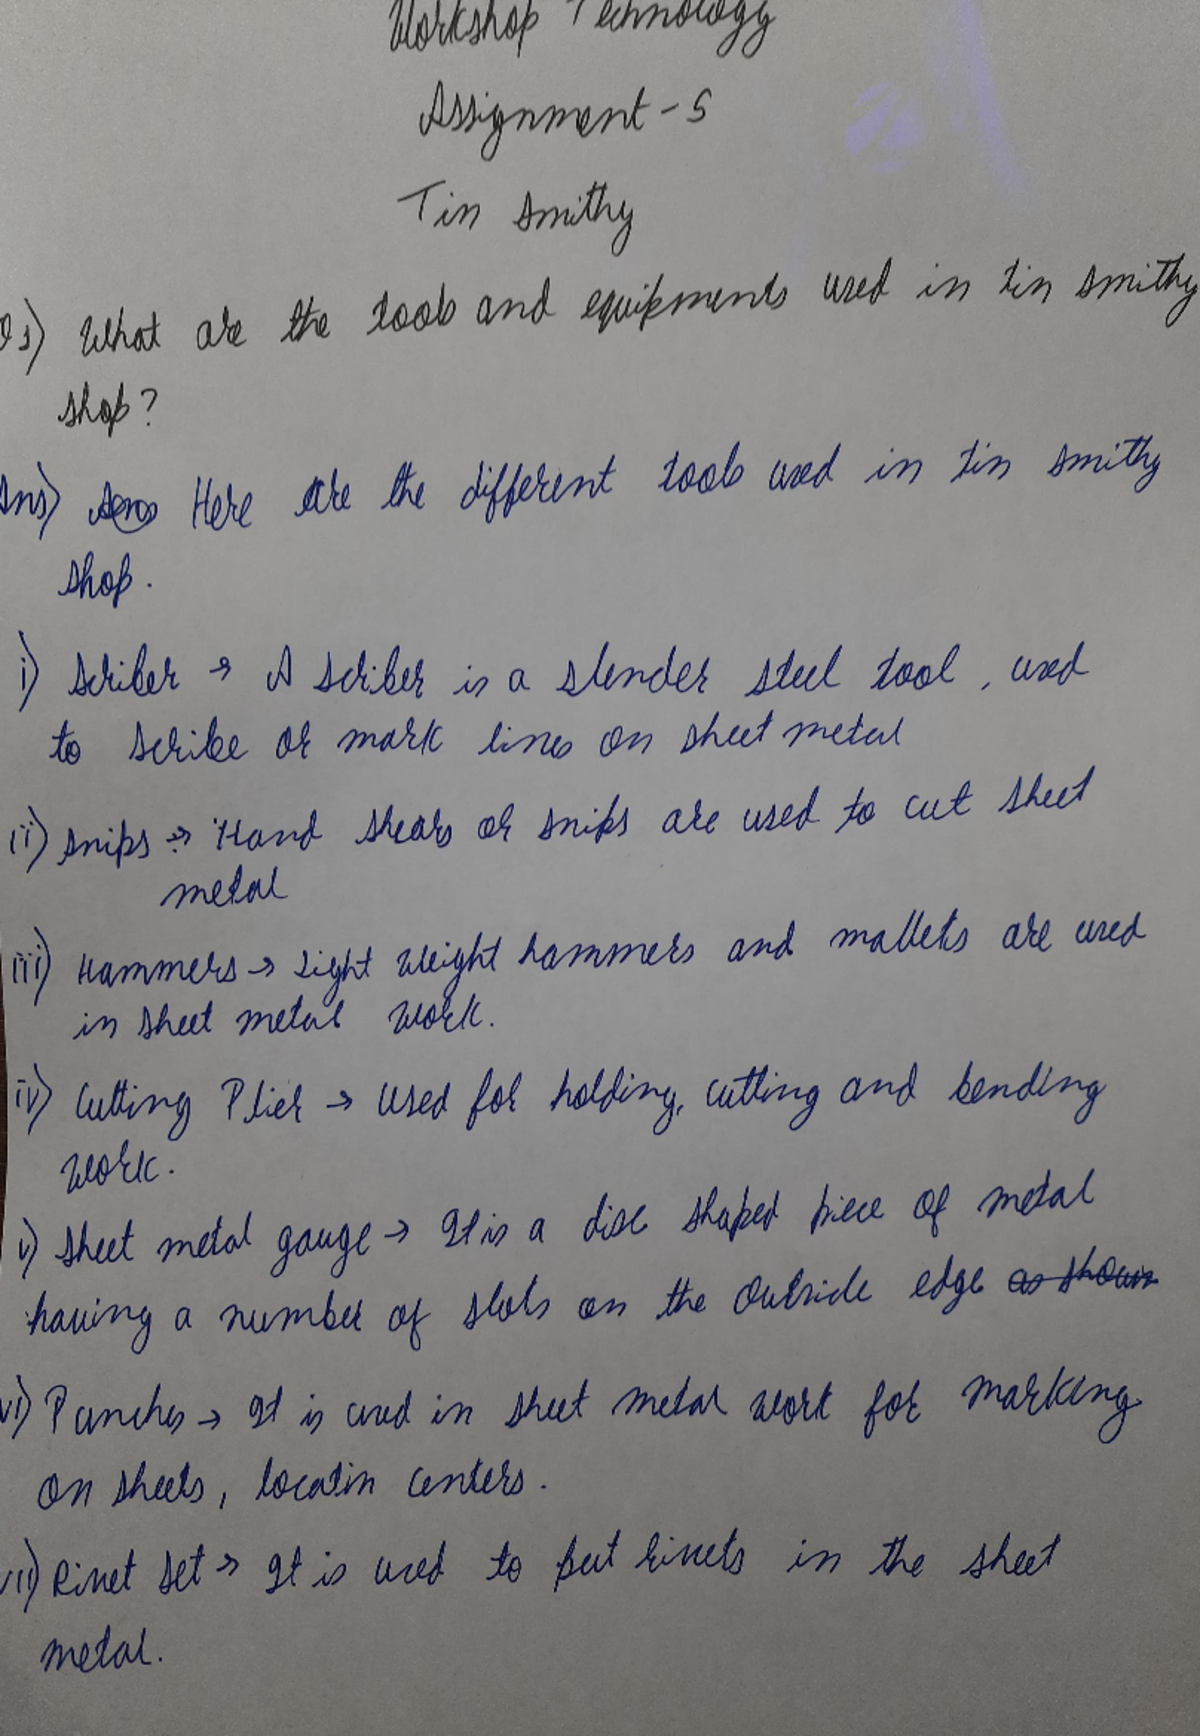 Workshop Technology
Assignment - 5
Tin Smithy
Q1) What are the tools and equipments used in tin smithy
shop?
Ans) Here are the different tools used in tin smithy
shop.
i) Scriber → A scriber is a slender steel tool, used
to scribe or mark lines on sheet metal
ii) Snips → Hand shears or snips are used to cut sheet
metal
iii) Hammers → Light weight hammers and mallets are used
in sheet metal work.
iv) Cutting Plier → used for holding, cutting and bending
work.
v) Sheet metal gauge → It is a disc shaped piece of metal
having a number of slots on the outside edge as shown
vi) Punches → It is used in sheet metal work for marking
on sheets, locatin centers.
vii) Rivet set → It is used to put rivets in the sheet
metal.